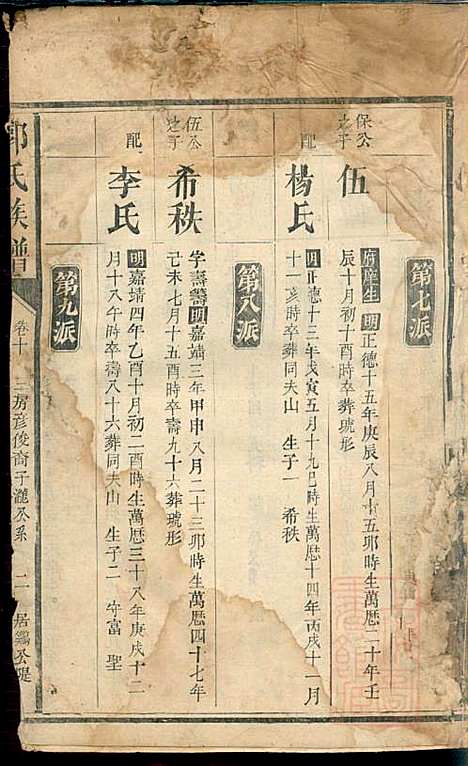 第七派
保公之子
伍
府庠生 明正德十五年庚辰八月十五夘時生萬曆二十年壬
辰十月初十酉時卒葬琥形
配
楊氏
明正德十三年戊寅五月十九巳時生萬曆十四年丙戌十一月
十一亥時卒葬同夫山 生子一 希秩
第八派
伍公之子
希秩
字壽籌明嘉靖三年甲申八月二十三夘時生萬曆四十七年
己未七月十五酉時卒壽九十六葬琥形
配
李氏
明嘉靖四年乙酉十月初二酉時生萬曆三十八年庚戌十二
月十八午時卒壽八十六葬同夫山 生子二 守富 聖
第九派
氏族譜
卷十
三房彥俊裔子瀧公系
二
居